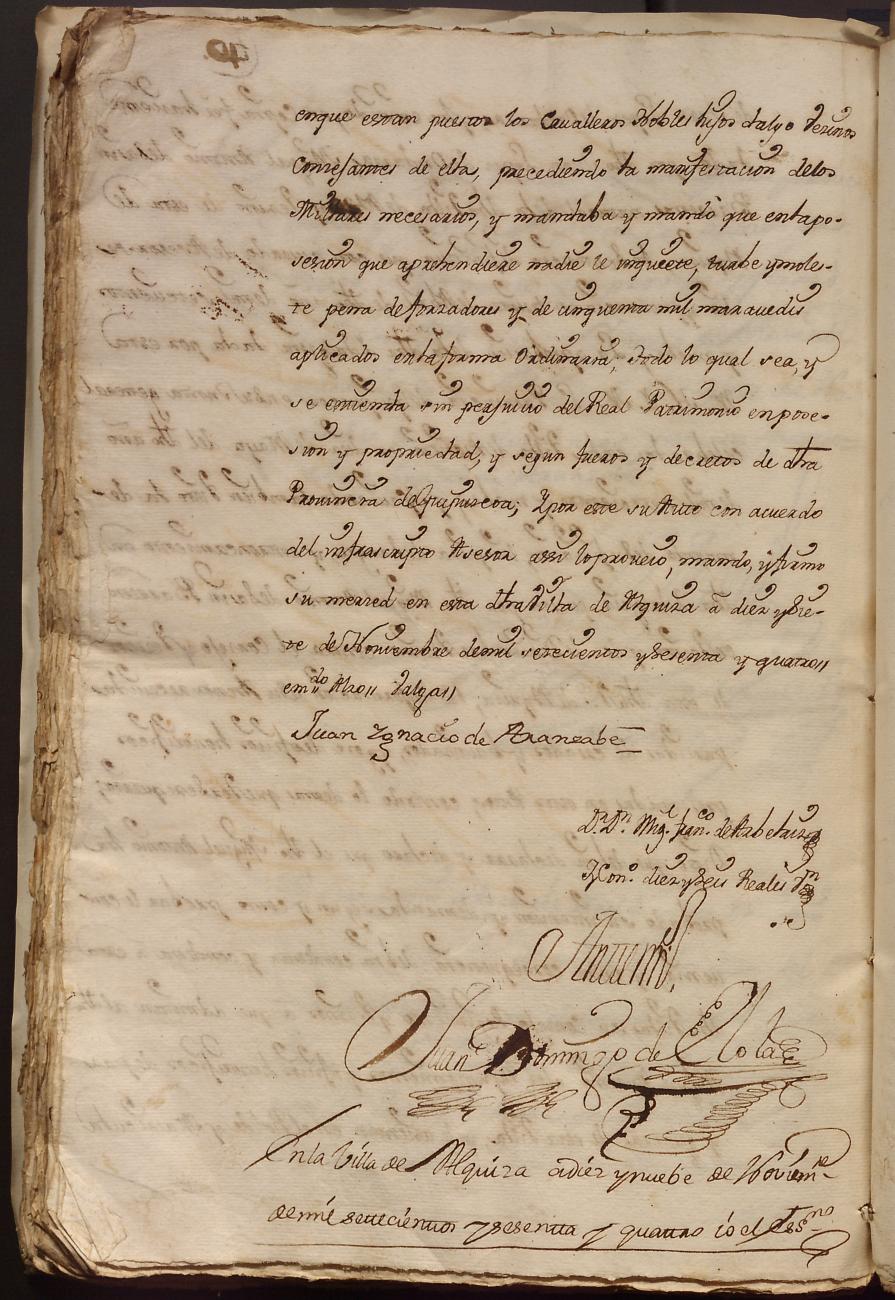 enque estan puestos los Cavalleros Nobles hijos dalgo vezinos
Conzejantes de ella, precediendo la manifestacion delos
Millares necesarios, y mandaba y mandò que enlapo-
sesion que aprehendiere nadie le inquiete, turbe ymoles-
te pena deforzadores y de cinquenta mil maravedis
aplicados enlaforma Ordinaria; todo lo qual sea, y
se entienda sin perjuicio del Real Patrimonio enpose-
sion y propriedad, y segun fueros y decretos de dha
Provincia deGuipuzcoa; Ypor este su Auto con acuerdo
del infrascripto Asesor assi loproveió, mando, yfirmo
su merced en esta dhaVilla de Alquiza â diez ysie-
te de Noviembre demil setecientos ysesenta y quatro//
em.do Alzo// Valga//
Juan Ygnacio de Aranzabe
D.r D.n Mig.l Fran.co de
Con.
diez yseis Reales V.n
Antemi
Juan Domingo de
Enla Villa de Alquiza adiez ynuebe de Noviem.e
demil settecientos ysesenta y quattro io el Ess.no